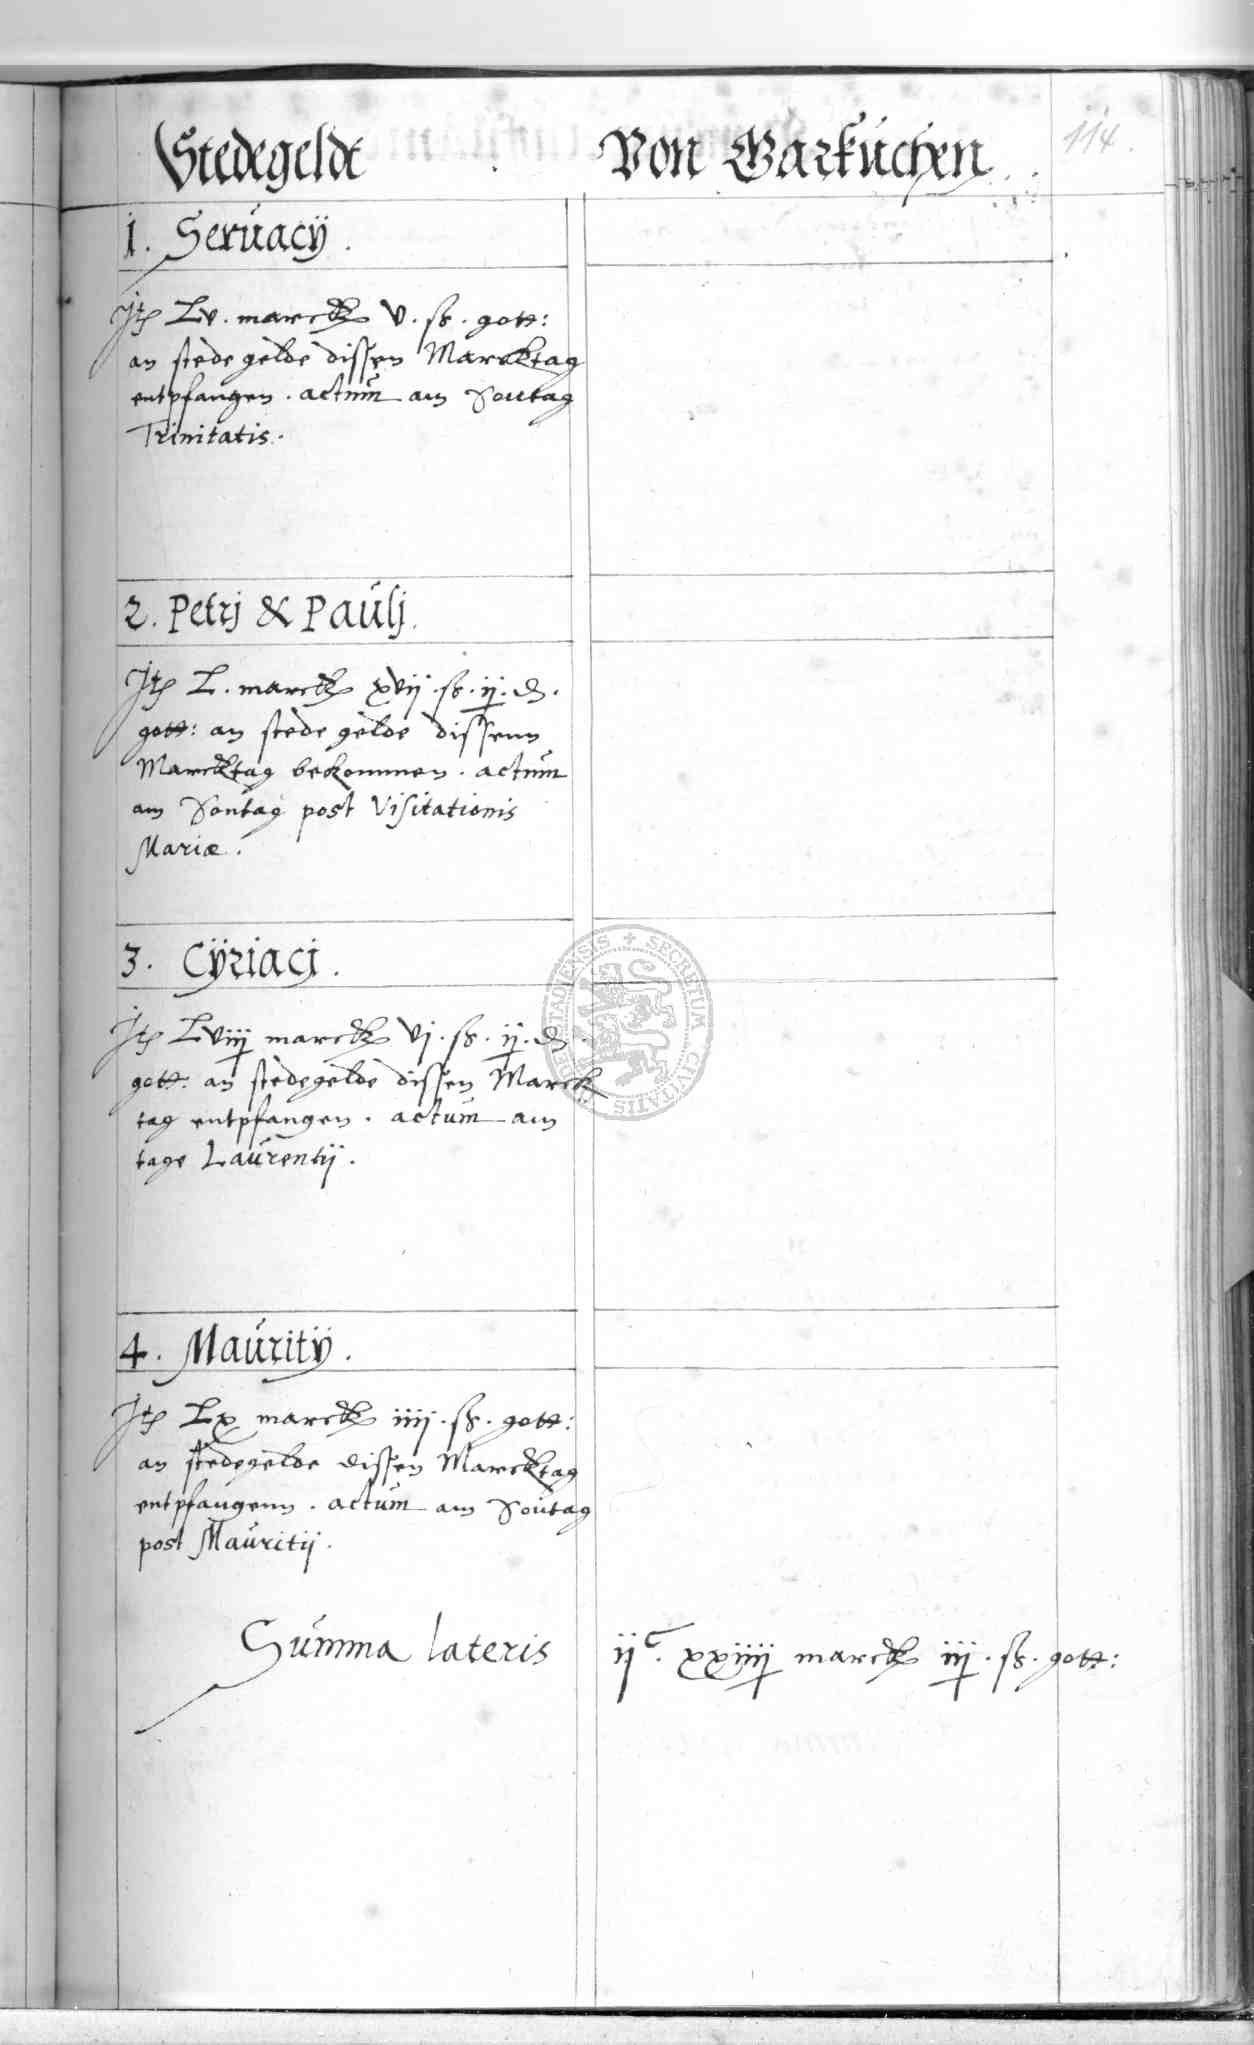 Stedegeldt Von Garkuchen.
114.
1. Seruacij.
Itē Lv. marck v. ß. gott:
an stedegelde dissen Marcktag
entpfangen. actum am Sontag
Trinitatis.
2. Petrj & Paulj.
Itē L. marck xvij. ß. ij. d.
gott: an stedegelde dissenn
Marcktag bekommen. actum
am Sontag post Visitationis
Mariæ.
3. Cÿriacj.
Itē Lviij marck vj. ß. ij. d.
gott: an stedegelde dissen Marck
tag entpfangen. actum am
tage Laurentij.
4. Mauritij.
Itē Lx marck iiij. ß. gott:
an stedegelde dissen Marcktag
entpfangenn. actum am Sontag
post Mauritij.
Summa lateris ijc. xxiiij marck iij. ß. gott:
SECRETUM CIVITATIS